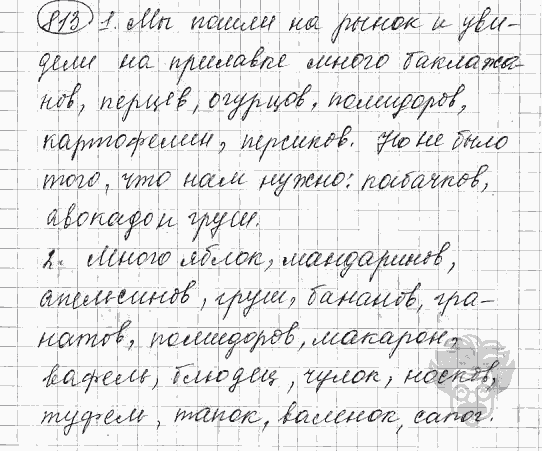 813 1. Мы пошли на рынок и уви-
дели на прилавке много баклажа-
нов, перцев, огурцов, помидоров,
картофелин, персиков. Но не было
того, что нам нужно: кабачков,
авокадо и груш.
2. Много яблок, мандаринов,
апельсинов, груш, бананов, гра-
натов, помидоров, макарон,
вафель, блюдец, чулок, носков,
туфель, тапок, валенок, сапог.